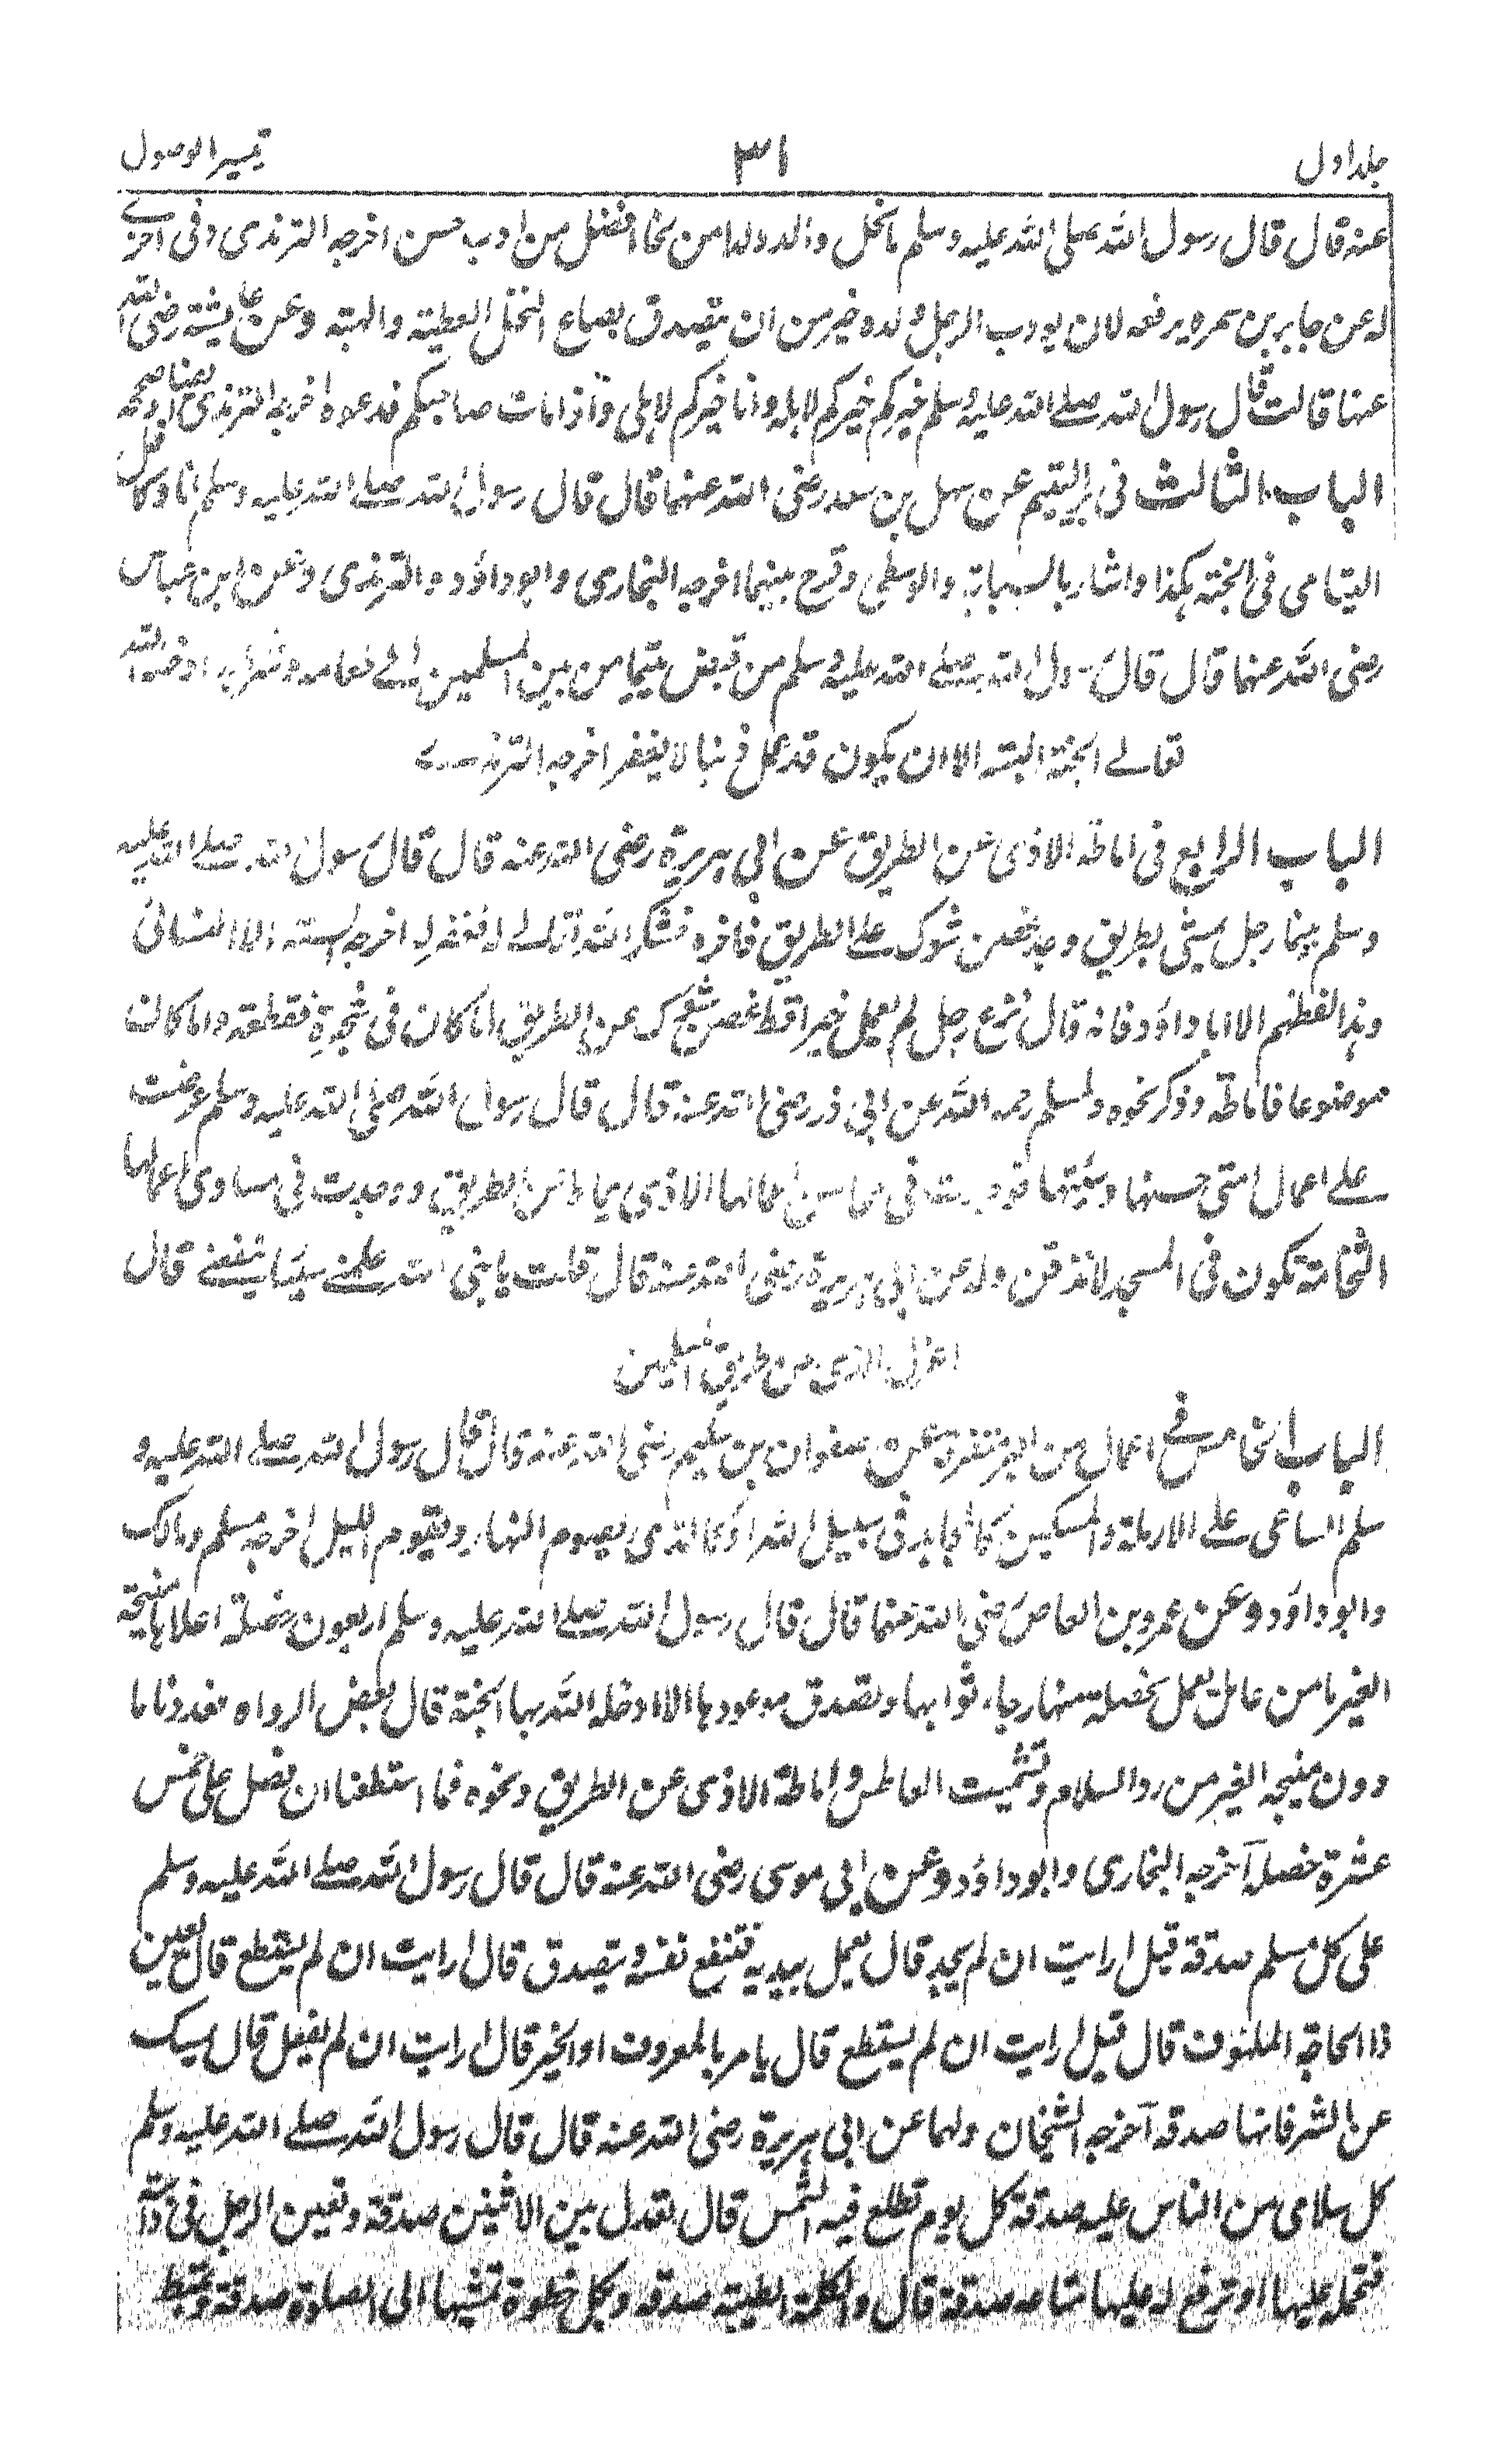 جلد اول ۳۱ تیسیر الوصول
عنہ قال قال رسول اللہ صلی اللہ علیہ وسلم ما نحل والد ولدا من نحل افضل من ادب حسن اخرجہ الترمذی وفی اخرے
لہ عن جابر بن سمرہ یرفعہ لان یودب الرجل ولدہ خیر من ان یتصدق بصاع النحل العطیتہ والہبتہ وعن عایشۃ رضی اللہ
عنہا قالت قال رسول اللہ صلے اللہ علیہ وسلم خیرکم خیرکم لاہلہ وانا خیرکم لاہلی واذا مات صاحبکم فدعوہ اخرجہ الترمذی ایضا وصححہ
الباب الثالث فی بر الیتیم عن سہل بن سعد رضی اللہ عنہما قال قال رسول اللہ صلے اللہ علیہ وسلم انا وکافل
الیتامی فی الجنتہ ہکذا واشار بالسبابۃ والوسطی وفرج بینہما اخرجہ البخاری وابوداؤد والترمذی وعن ابن عباس
رضی اللہ عنہما قال قال رسول اللہ صلے اللہ علیہ وسلم من قبض یتیما من بین المسلمین الے طعامہ وشرابہ ادخلہ اللہ
تعالے الجنۃ البتہ الا ان یکون قد عمل ذنبا لا یغفر اخرجہ الترمذے
الباب الرابع فی اماطۃ الاذی عن الطریق عن ابی ہریرۃ رضی اللہ عنہ قال قال رسول اللہ صلے اللہ علیہ
وسلم بینما رجل یمشی بطریق وجد غصن شوک علے الطریق فاخرہ فشکر اللہ تعالے لہ فغفر لہ اخرجہ الستہ الا النسائی
وہذا لفظہم الا ابا داؤد فانہ قال نزع رجل لم یعمل خیرا قط غصن شوک عن الطریق اما کان فی شجرۃ فقطعہ واما کان
موضوعا فاماطہ وذکر نحوہ ولمسلم رحمہ اللہ عن ابی ذر رضی اللہ عنہ قال قال رسول اللہ صلی اللہ علیہ وسلم عرضت
علے اعمال امتی حسنہا وسیئہا فوجدت فی محاسن اعمالہا الاذی یماط عن الطریق ووجدت فی مساوی اعمالہا
النخامۃ تکون فی المسجد لا تدفن ولہ عن ابی ہریرۃ رضی اللہ عنہ قال قلت یا نبی اللہ علمنے شیئا ینفعنے قال
اعزل الاذی عن طریق المسلمین
الباب الخامس فے اعمال من البر متفرقۃ عن صفوان بن سلیم رضی اللہ عنہ قال قال رسول اللہ صلے اللہ علیہ و
سلم الساعی علے الارملۃ والمسکین کالمجاہد فی سبیل اللہ او کالذی یصوم النہار ویقوم اللیل اخرجہ مسلم ومالک
وابوداؤد وعن عمرو بن العاص رضی اللہ عنہما قال قال رسول اللہ صلے اللہ علیہ وسلم اربعون خصلۃ اعلاہا منیحۃ
العنز ما من عامل یعمل بخصلۃ منہا رجاء ثوابہا وتصدیق موعودہا الا ادخلہ اللہ بہا الجنۃ قال بعض الرواہ فعددنا ما
دون منیحہ العنز من رد السلام وتشمیت العاطس واماطۃ الاذی عن الطریق ونحوہ فما استطعنا ان نصل علی خمس
عشرۃ خصلۃ اخرجہ البخاری وابوداؤد وعن ابی موسی رضی اللہ عنہ قال قال رسول اللہ صلے اللہ علیہ وسلم
علی کل مسلم صدقۃ قیل ارایت ان لم یجد قال یعمل بیدیہ فینفع نفسہ ویتصدق قال ارایت ان لم یستطع قال یعین
ذا الحاجۃ الملہوف قال قیل ارایت ان لم یستطع قال یامر بالمعروف او الخیر قال ارایت ان لم یفعل قال یمسک
عن الشر فانہا صدقہ اخرجہ الشیخان ولہما عن ابی ہریرۃ رضی اللہ عنہ قال قال رسول اللہ صلے اللہ علیہ وسلم
کل سلامی من الناس علیہ صدقۃ کل یوم تطلع فیہ الشمس قال تعدل بین الاثنین صدقۃ وتعین الرجل فی دابتہ
فتحملہ علیہا او ترفع لہ علیہا متاعہ صدقۃ قال والکلمۃ الطیبۃ صدقہ وبکل خطوۃ تمشیہا الی الصلاۃ صدقۃ وتمیط